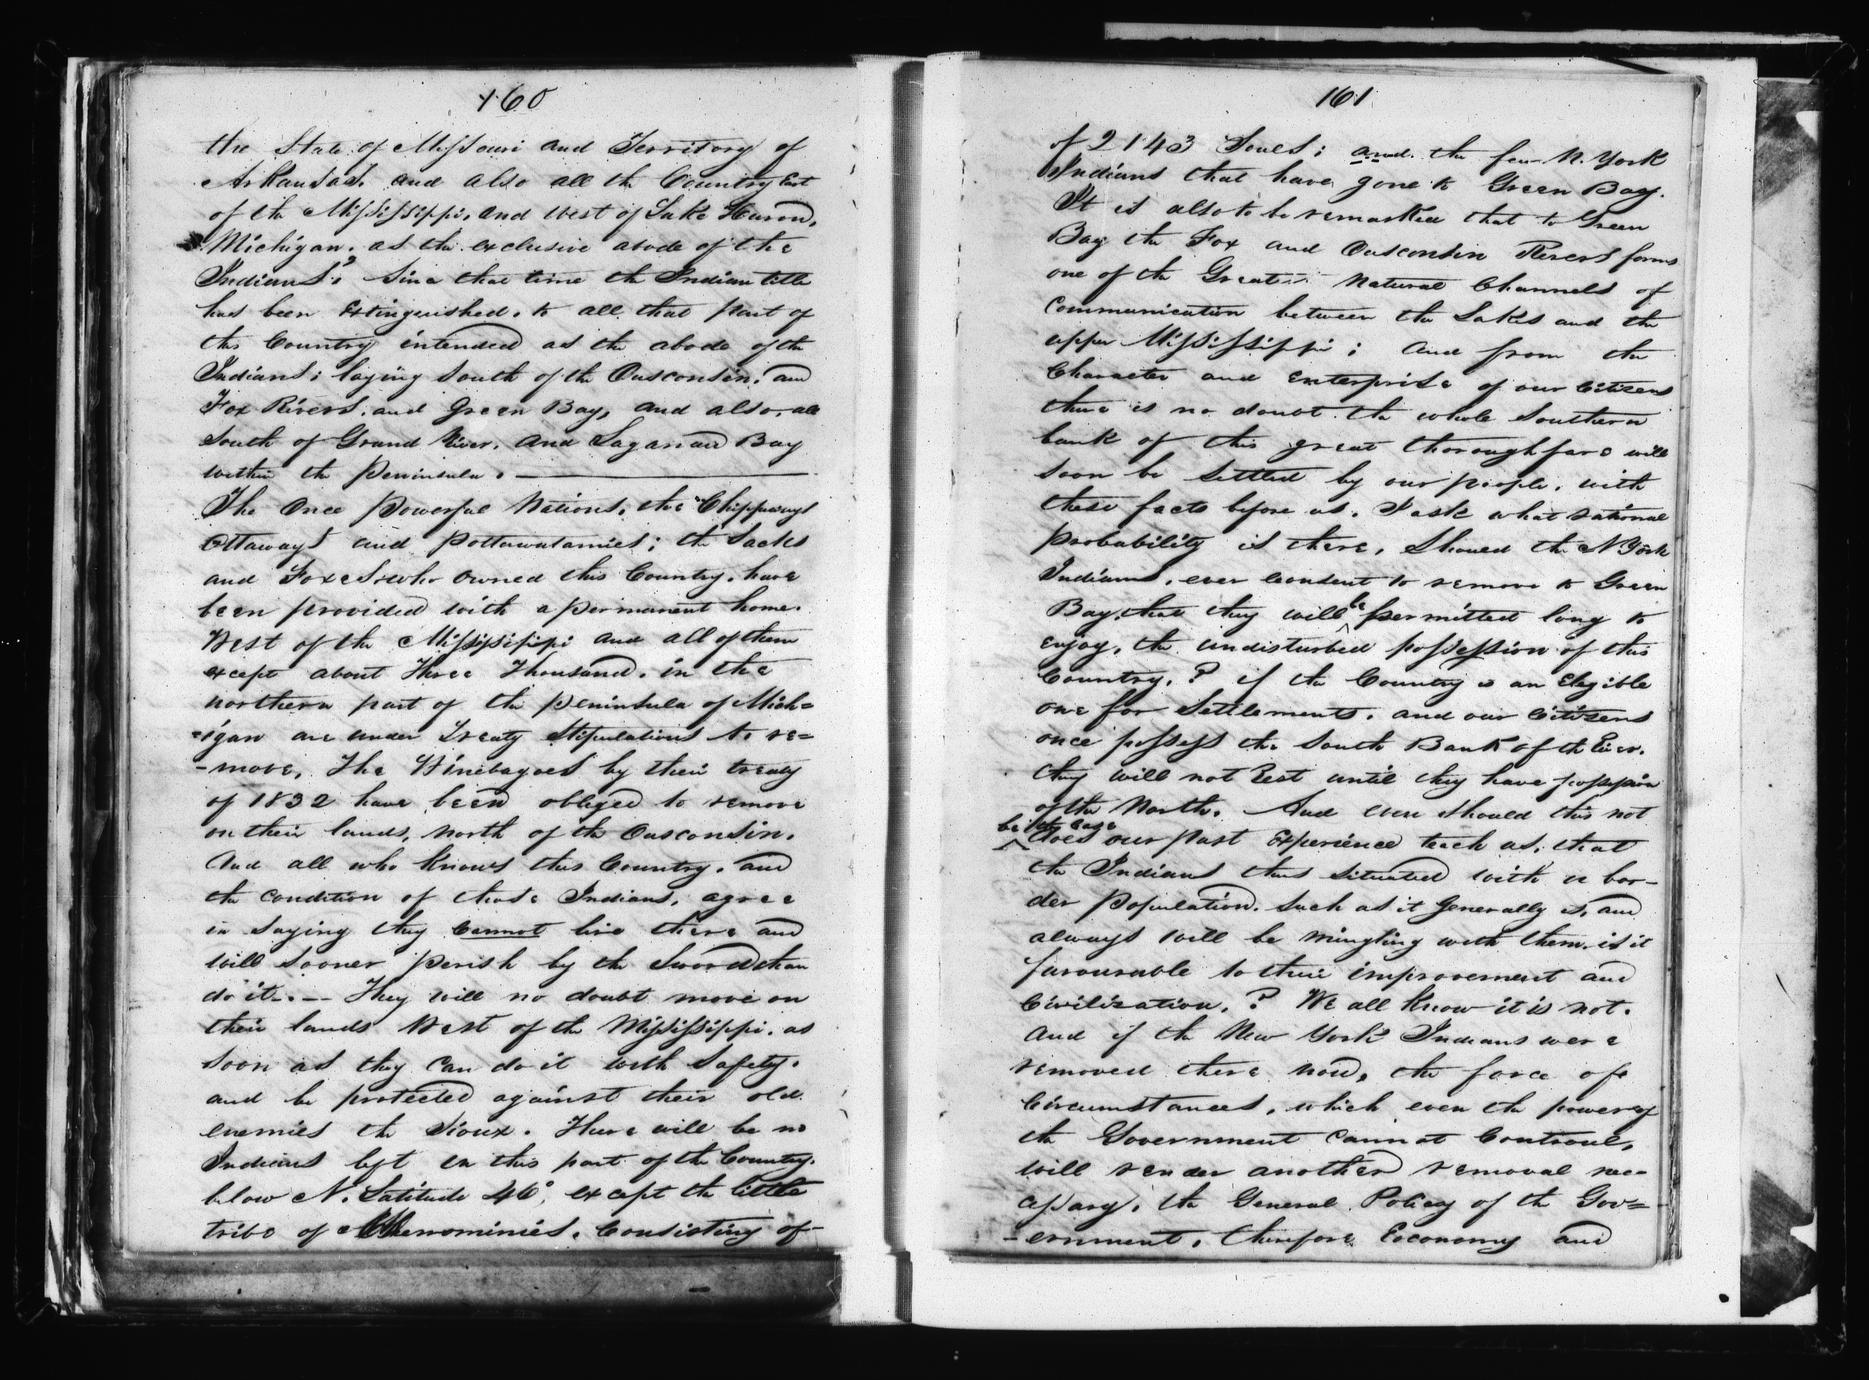 160
the State of Missouri and Territory of
Arkansas. and also all the Country East
of the Mississippi, and West of Lake Huron,
Michigan. as the exclusive abode of the
Indians"; Since that time the Indian title
has been extinguished. to all that part of
this Country intended as the abode of the
Indians; laying South of the Ousconsin, and
Fox Rivers. and Green Bay, and also, all
South of Grand River. and Saganaw Bay
within the Peninsula. —
The Once Powerful Nations, the "Chippeways
Ottaways and Pottawatamies; the Sacks
and Foxes who owned this Country, have
been provided with a permanent home.
West of the Mississippi and all of them
except about Three Thousand. in the
northern part of the Peninsula of Mich=
=igan are under Treaty Stipulations to re=
-move, The Winebagoes by their treaty
of 1832 have been obliged to remove
on their lands, North of the Ousconsin.
And all who knows this Country, and
the condition of those Indians, agree
in saying they Cannot live there and
will sooner perish by the Sword than
do it. — They will no doubt move on
their lands West of the Mississippi. as
soon as they can do it with Safety.
and be protected against their old
enemies the Sioux. There will be no
Indians left in this part of the Country.
blow N. Latitude 46°, except the little
tribe of Menominies. Consisting of
161
of 2143 Souls; and the few N. York
Indians that have gone to Green Bay.
It is also to be remarked that to Green
Bay the Fox and Ousconsin Rivers forms
one of the Great natural Channels of
Communication between the Lakes and the
upper Mississippi; and from the
Character and enterprise of our Citizens
there is no doubt the whole Southern
bank of this great thoroughfare will
soon be Settled by our people, with
these facts before us. I ask what rational
probability is there, Should the N York
Indians, ever consent to remove to Green
Bay, that they will be permitted long to
enjoy, the undisturbed possession of this
Country.? if the Country is an Elegible
one for Settlements, and our Citizens
once possess the South Bank of the River.
they will not Rest until they have possession
of the North. And even should this not
be the case does our past Experience teach us, that
the Indians thus situated with a bor-
der population. such as it generally is, and
always will be mingling with them. is it
favourable to their improvement and
Civilization.? We all know it is not.
And if the New York Indians were
removed there now, the force of
Circumstances, which even the power of
the Government cannot Controul,
will render another removal nec-
essary. the General Policy of the Gov=
-ernment, therefore Economy and